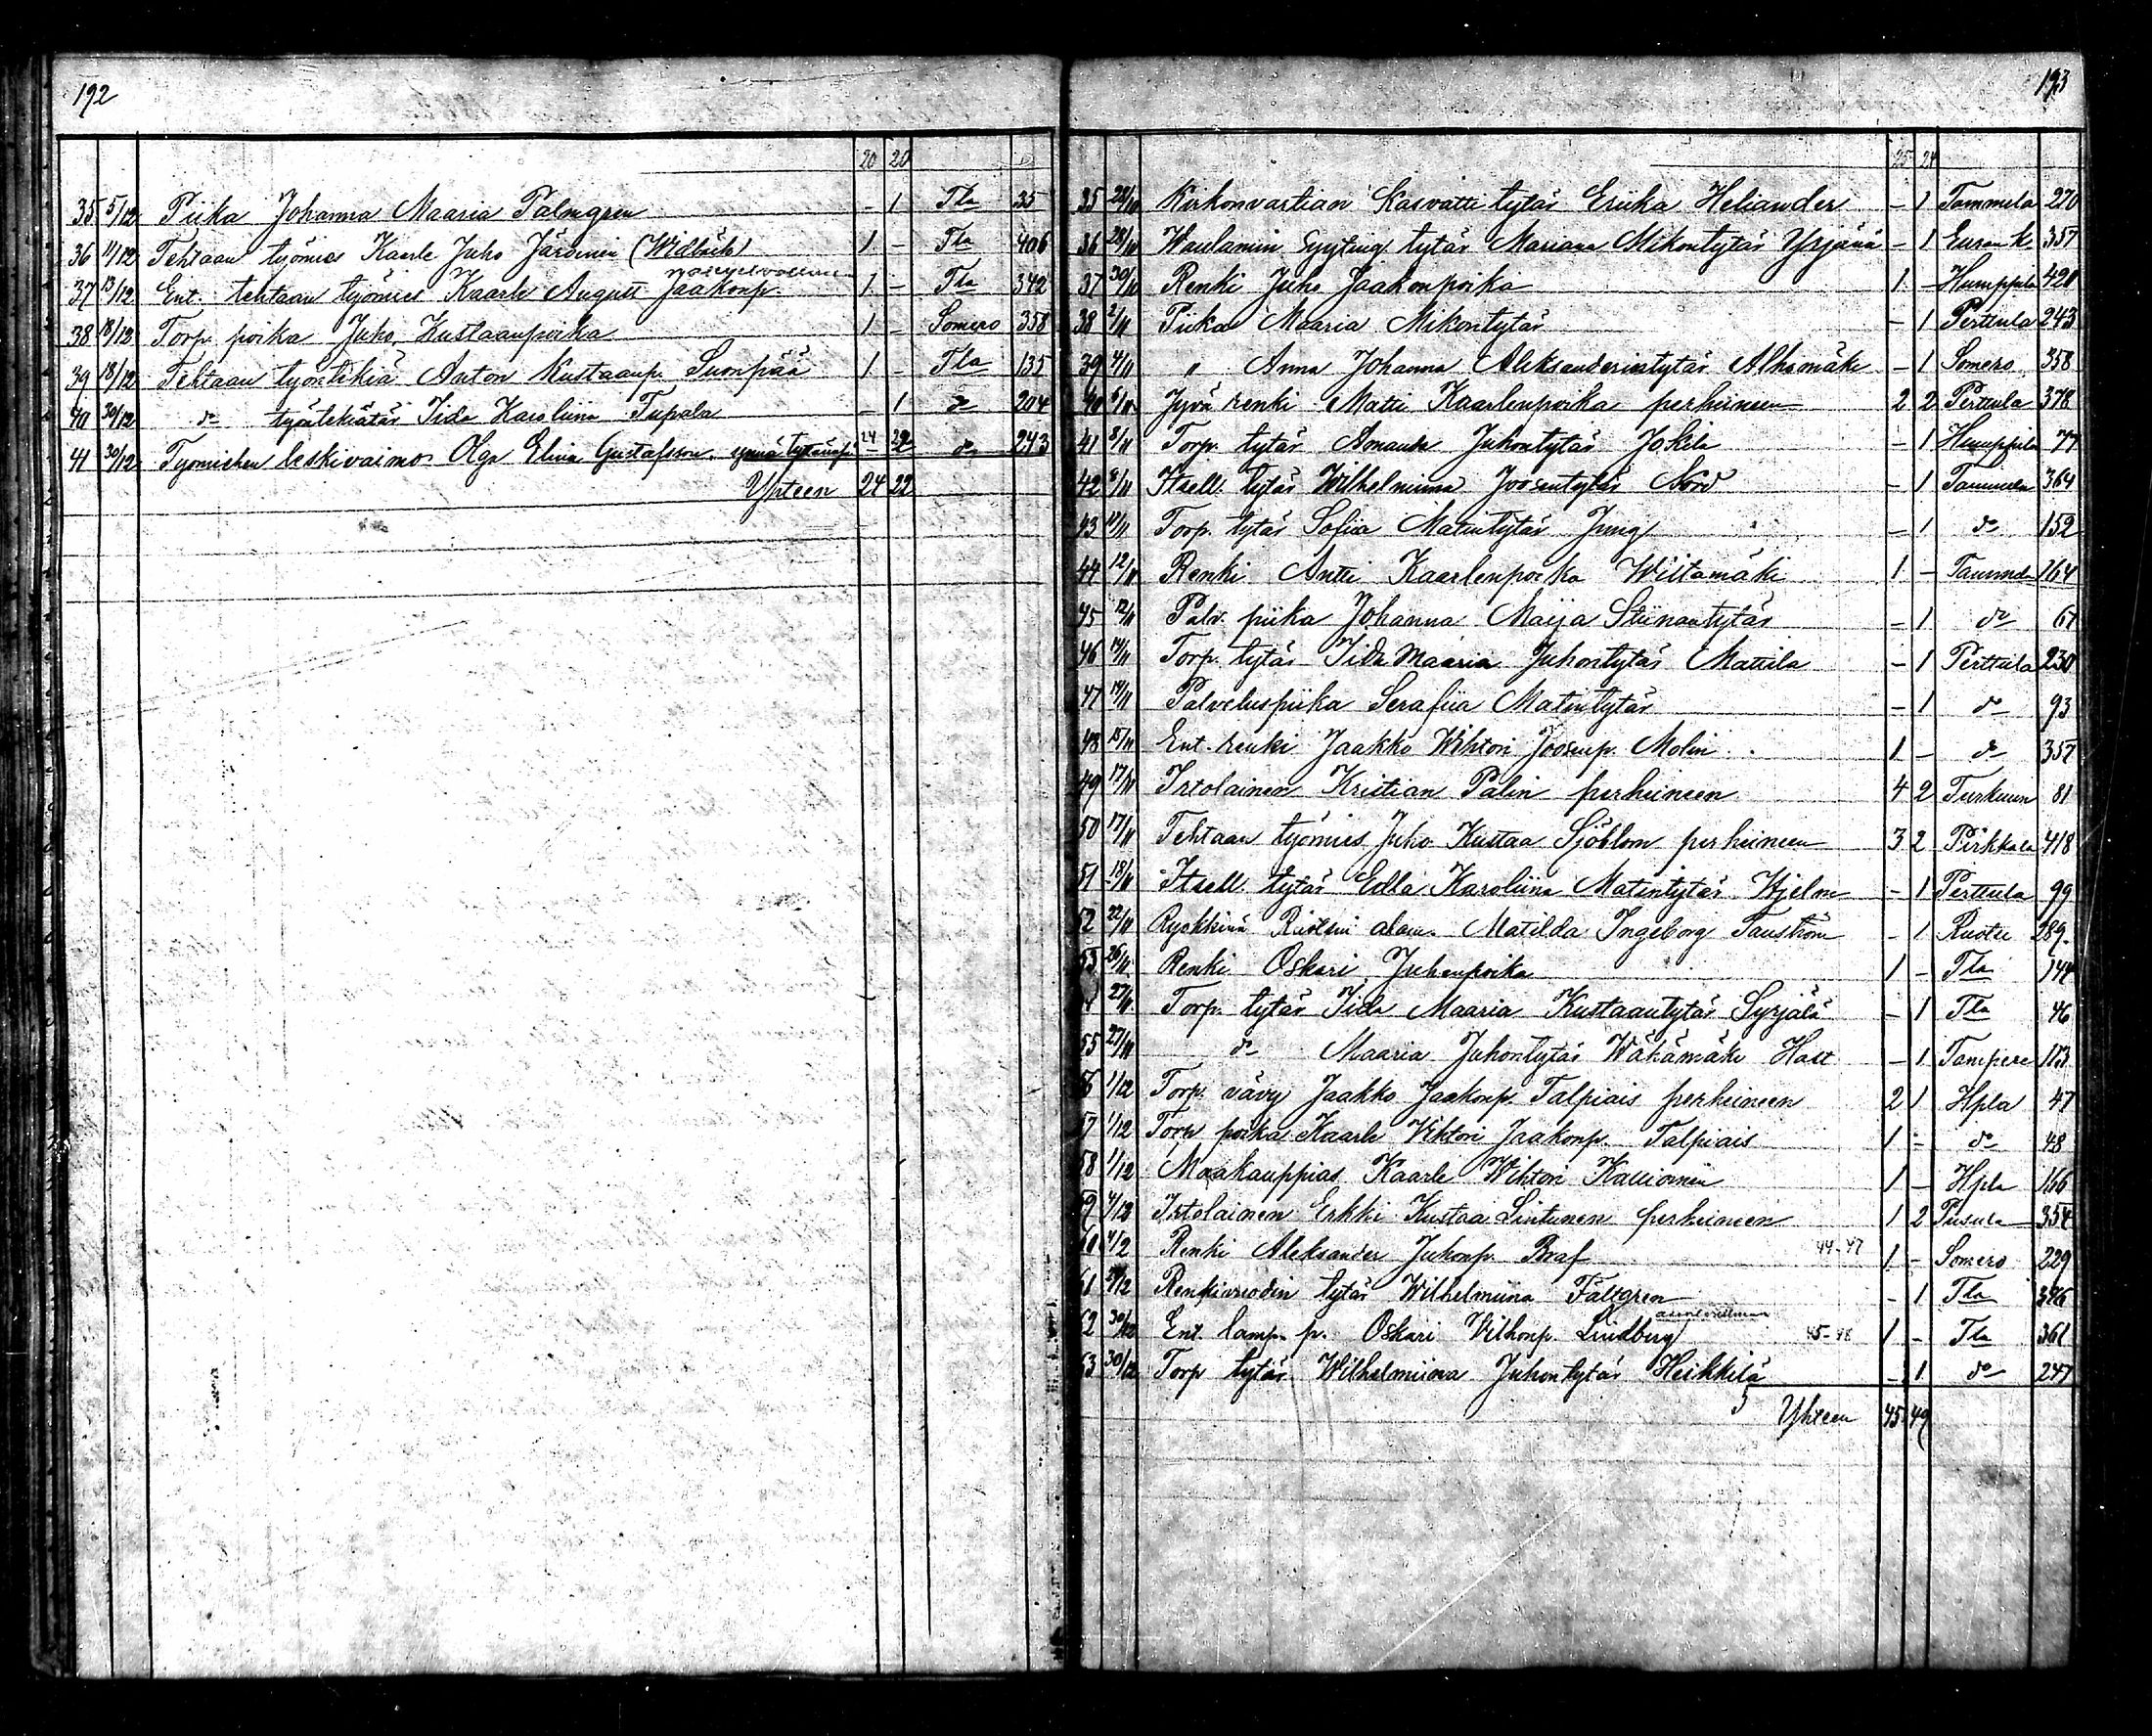 192
20 20
35 5/12 Piika Johanna Maaria Palmgren - 1 Tla 35
36 11/12 Tehtaan työmies Kaarle Juho Järvinen (Widbäck) 1 - Tla 406
37 13/12 Ent. tehtaan työmies Kaarle August Jaakonp. 1 - Tla 342
38 18/12 Torp. poika Juho Kustaanpoika 1 - Somero 358
39 18/12 Tehtaan työntekiä Anton Kustaanp. Suonpää 1 - Tla 135
40 30/12 do työntekiätär Iida Karoliina Tupala - 1 do 204
41 30/12 Työmiehen leskivaimo Olga Elina Gustafsson 24 22 do 243
Yhteen 24 22
193
25 24
35 28/10 Kirkonvartian Kasvatti tytär Eriika Heliander - 1 Tammela 270
36 28/10 tytär Mariana Mikontytär Yrjänä - 1 Euran k. 357
37 30/10 Renki Juho Jaakonpoika 1 - Humppila 420
38 2/11 Piika Maaria Mikontytär - 1 Perttula 243
39 4/11 " Anna Johanna Aleksanderintytär Alhomäki - 1 Somero 358
40 6/11 Jyvä renki Matti Kaarlenpoika perheineen 2 2 Perttula 378
41 8/11 Torp. tytär Amanda Juhontytär Jokela - 1 Humppila 77
42 9/11 Itsell. tytär Wilhelmiina Joosentytär Nord - 1 Tammela 364
43 11/11 Torp. tytär Sofia Matintytär Jung - 1 do 152
44 12/11 Renki Antti Kaarlenpoika Wiitamäki 1 - Tammela 164
45 12/11 Palv. piika Johanna Maija Stiinantytär - 1 do 67
46 14/11 Torp. tytär Iida Maaria Juhontytär Mattila - 1 Perttula 230
47 14/11 Palveluspiika Serafiia Matintytär - 1 do 93
48 15/11 Ent. renki Jaakko Wihtori Joosenp. Molin 1 - do 357
49 17/11 Irtolainen Kristian Palin perheineen 4 2 Turkuun 81
50 17/11 Tehtaan työmies Juho Kustaa Sjöblom perheineen 3 2 Pirkkala 418
51 18/11 Itsell. tytär Edla Karoliina Matintytär Hjelm - 1 Perttula 99
52 22/11 Ryökkinä Matilda Ingeborg - 1 289
53 26/11 Renki Oskari Juhonpoika 1 - Tla 144
27/11 Torp. tytär Iida Maaria Kustaantytär Syrjälä - 1 Tla 46
55 27/11 do Maaria Juhontytär Wähämäki - 1 Tampere 113
56 1/12 Torp. vävy Jaakko Jaakonp. Talpiais perheineen 2 1 Hpla 47
57 1/12 Torp. poika Kaarle Vihtori Jaakonp. Talpiais 1 - do 48
58 1/12 Maakauppias Kaarle Wihtori Kallioinen 1 - Hpla 166
59 4/12 Irtolainen Erkki Kustaa Lintunen perheineen 1 2 Pusula 354
60 4/12 Renki Aleksander Juhonp. Braf 44-47 1 - Somero 229
61 Renkivoudin tytär Wilhelmiina Fältgren - 1 Tla 376
62 30/12 Ent. lamp. p. Oskari Vilhonp. Lindberg 45-48 1 - Tla 361
63 30/12 Torp. tytär Wilhelmiina Juhontytär Heikkilä - 1 do 247
Yhteen 45 49